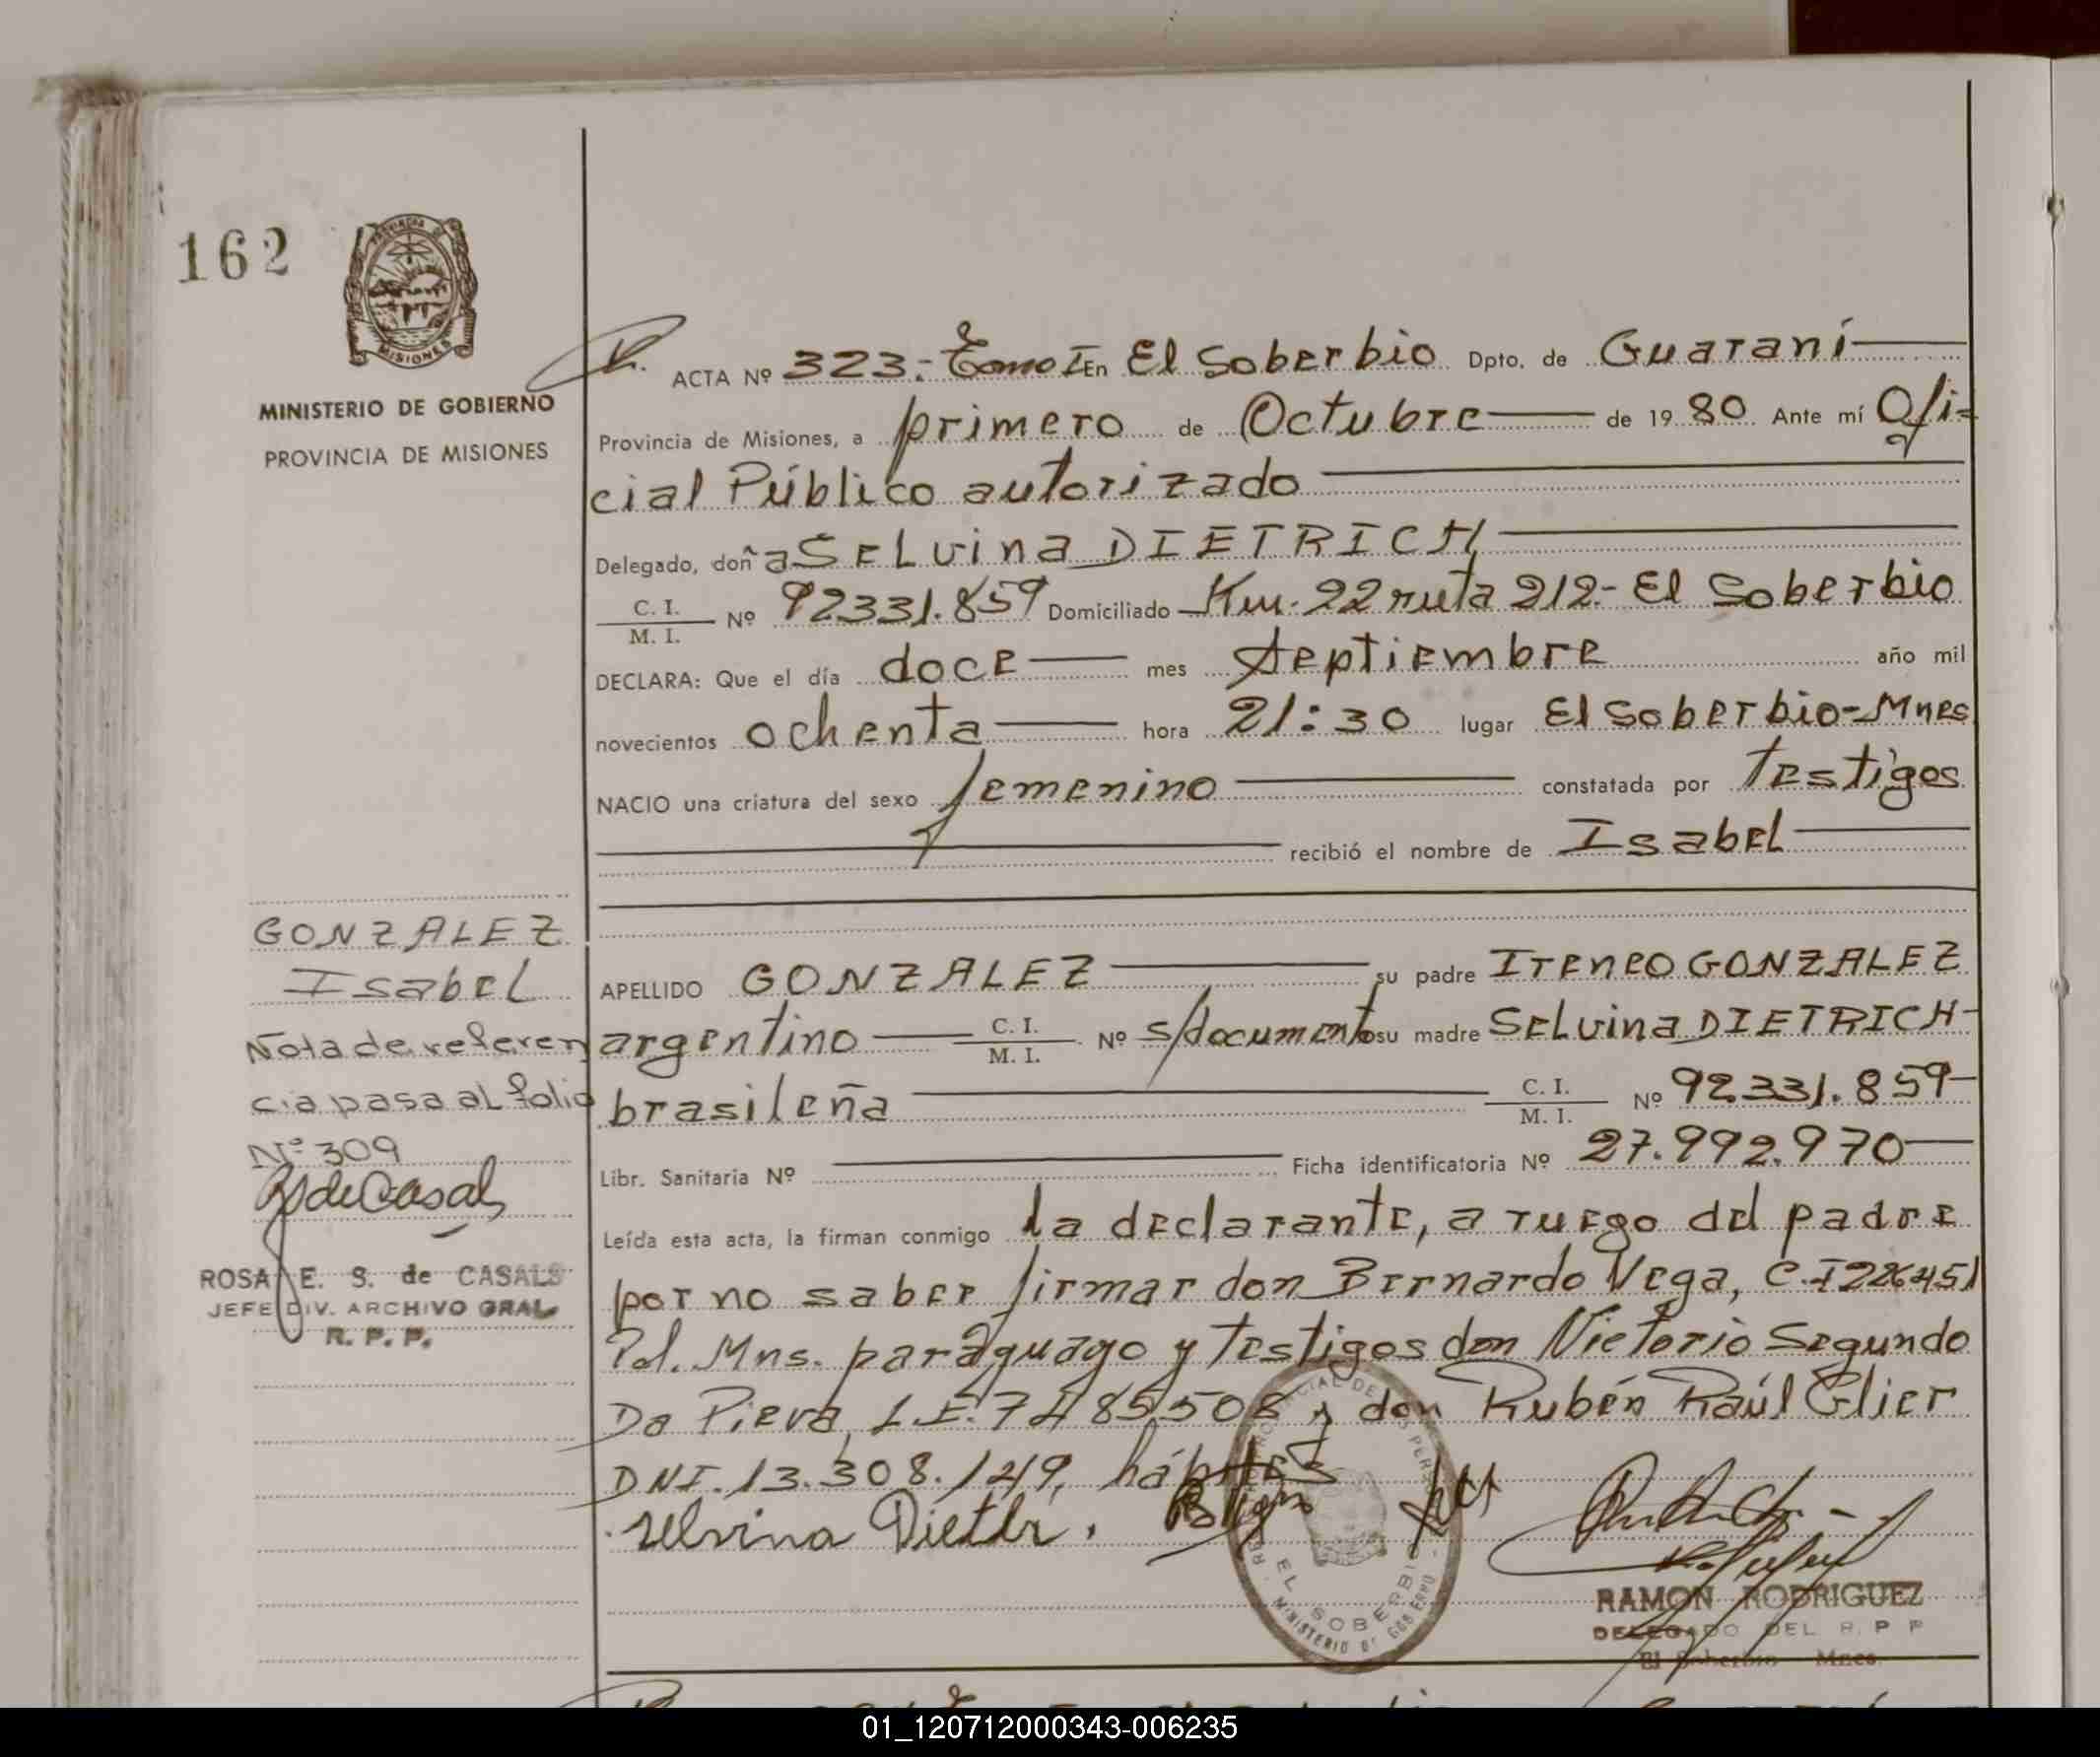 162
PROVINCIA DE
MISIONES
MINISTERIO DE GOBIERNO
PROVINCIA DE MISIONES
ACTA Nº 323.- Tomo I En El Soberbio Dpto. de Guaraní
Provincia de Misiones, a primero de Octubre de 19 80 Ante mí Ofi-
cial Público autorizado
Delegado, doña SELvina DIETRICH
C. I. / M. I. Nº 92331.859 Domiciliado Km. 22 ruta 212.- El Soberbio
DECLARA: Que el día doce mes septiembre año mil
novecientos ochenta hora 21:30 lugar El Soberbio-Mnes
NACIO una criatura del sexo femenino constatada por testigos
recibió el nombre de Isabel
GONZALEZ
Isabel
Nota de referen
cia pasa al folio
Nº 309
RSdeCasals
ROSA E. S. de CASALS
JEFE DIV. ARCHIVO GRAL
R. P. P.
APELLIDO GONZALEZ su padre Ireneo GONZALEZ
argentino C. I. / M. I. Nº s/documento su madre SELvina DIETRICH
brasileña C. I. / M. I. Nº 92.331.859
Libr. Sanitaria Nº Ficha identificatoria Nº 27.992.970
Leída esta acta, la firman conmigo la declarante, a ruego del padre
por no saber firmar don Bernardo Vega, C.I 226451
Pol. Mns. paraguayo y testigos don Victorio Segundo
Da Pieva, L.E. 7485508 y don Rubén Raúl Glier
DNI. 13.308.149, hábiles
Selvina Dietdr.
EL SOBERBIO
MINISTERIO DE GOBIERNO
RAMON RODRIGUEZ
DELEGADO DEL R. P P
El Soberbio Mnes.
01_120712000343-006235